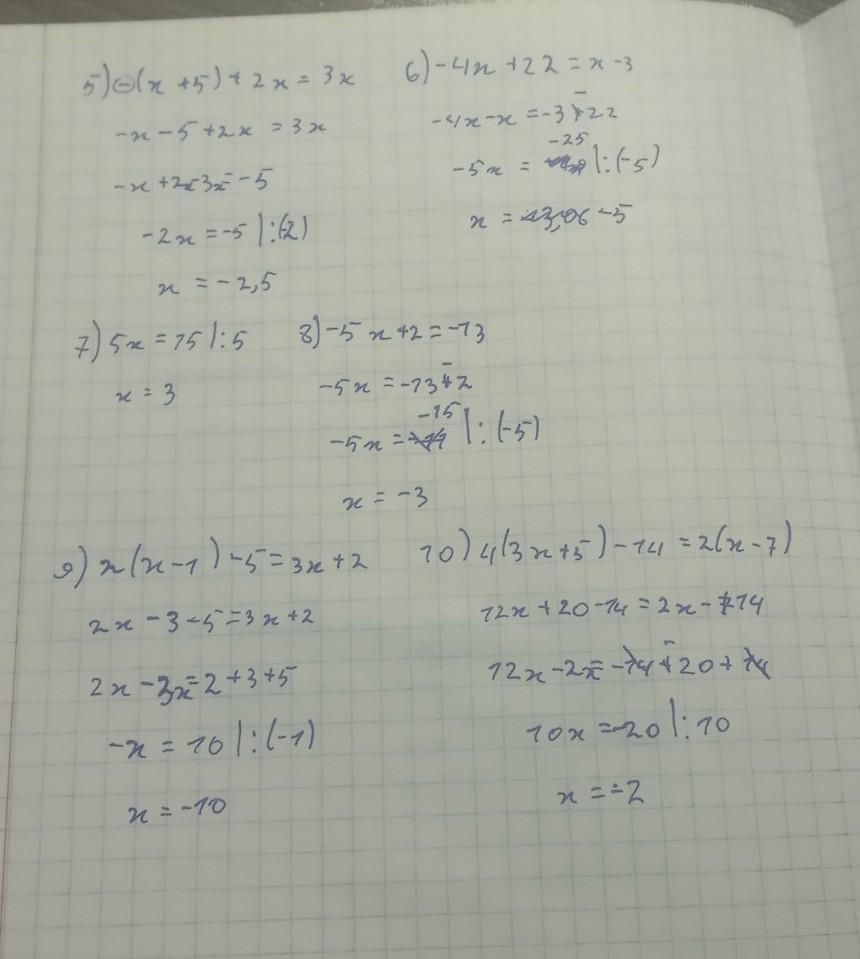 5) -(x+5)+2x=3x
-x-5+2x=3x
-x+2x-3x=-5
-2x=-5 |:(-2)
x=-2,5
6) -4x+22=x-3
-4x-x=-3-22
-5x=-25 |:(-5)
x=-5
7) 5x=15 |:5
x=3
8) -5x+2=-13
-5x=-13-2
-5x=-15 |:(-5)
x=-3
9) x(x-1)-5=3x+2
2x-3-5=3x+2
2x-3x=2+3+5
-x=10 |:(-1)
x=-10
10) 4(3x+5)-14=2(x-7)
12x+20-14=2x-14
12x-2x=-14-20+14
10x=-20 |:10
x=-2